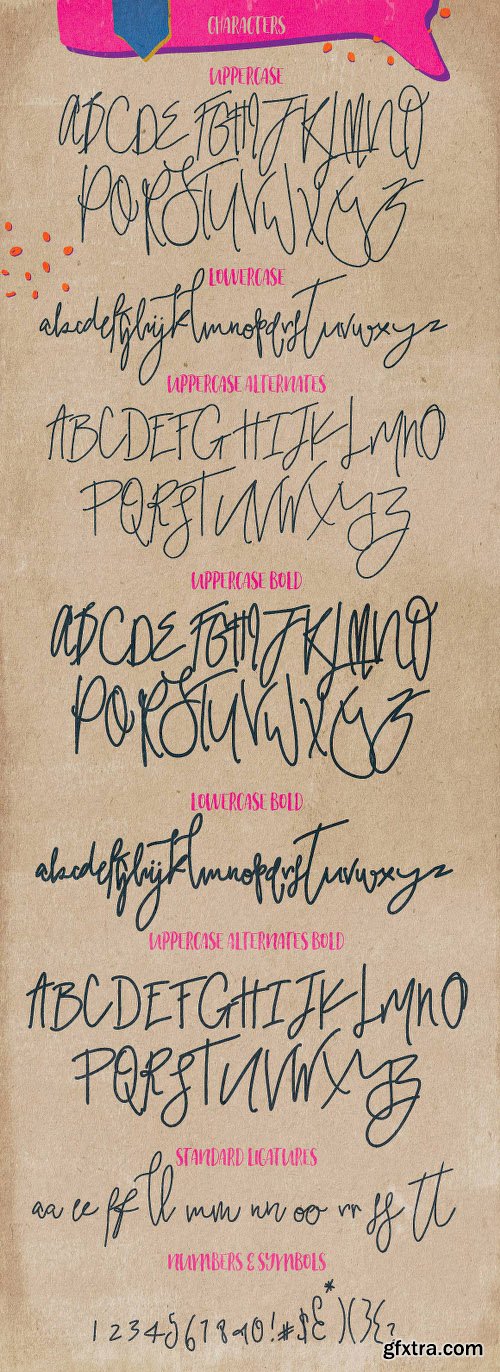 CHARACTERS
UPPERCASE
ABCDEFGHIJKLMNO
PQRSTUVWXYZ
LOWERCASE
abcdefghijklmnopqrstuvwxyz
UPPERCASE ALTERNATES
ABCDEFGHIJKLMNO
PQRSTUVWXYZ
UPPERCASE BOLD
ABCDEFGHIJKLMNO
PQRSTUVWXYZ
LOWERCASE BOLD
abcdefghijklmnopqrstuvwxyz
UPPERCASE ALTERNATES BOLD
ABCDEFGHIJKLMNO
PQRSTUVWXYZ
STANDARD LIGATURES
aa ee ff ll mm nn oo rr ss tt
NUMBERS & SYMBOLS
1234567890!#$&*)(}{?
gfxtra.com